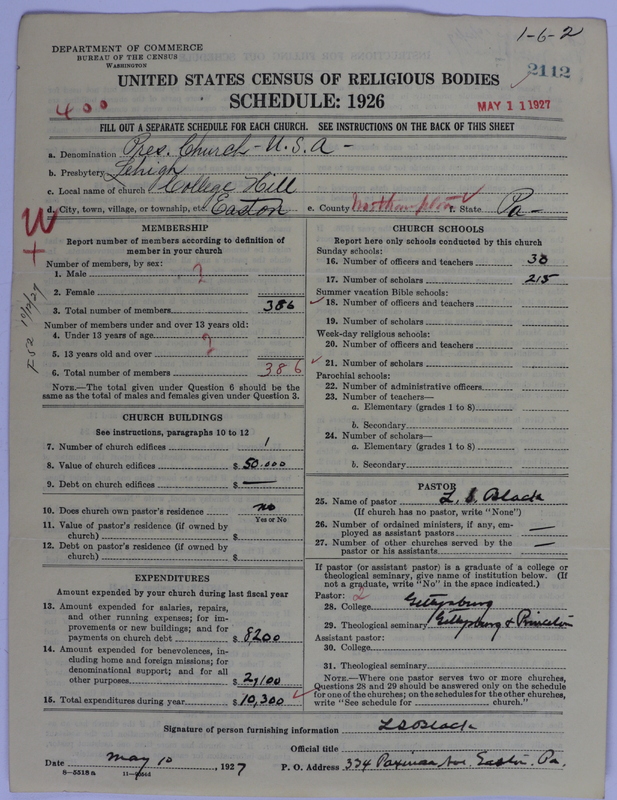 1-6-2
DEPARTMENT OF COMMERCE
BUREAU OF THE CENSUS
WASHINGTON
2112
UNITED STATES CENSUS OF RELIGIOUS BODIES
SCHEDULE: 1926
400
MAY 11 1927
FILL OUT A SEPARATE SCHEDULE FOR EACH CHURCH. SEE INSTRUCTIONS ON THE BACK OF THIS SHEET
a. Denomination Pres. Church - U.S.A -
b. Presbytery Lehigh
c. Local name of church College Hill
d. City, town, village, or township, etc. Easton e. County Northampton f. State Pa-
W
+
MEMBERSHIP
Report number of members according to definition of
member in your church
Number of members, by sex:
1. Male ?
2. Female
3. Total number of members 386
Number of members under and over 13 years old:
4. Under 13 years of age ?
5. 13 years old and over
6. Total number of members 386
NOTE.—The total given under Question 6 should be the
same as the total of males and females given under Question 3.
CHURCH BUILDINGS
See instructions, paragraphs 10 to 12
7. Number of church edifices 1
8. Value of church edifices $ 50.000
9. Debt on church edifices $ —
10. Does church own pastor's residence no
Yes or No
11. Value of pastor's residence (if owned by
church) $
12. Debt on pastor's residence (if owned by
church) $
EXPENDITURES
Amount expended by your church during last fiscal year
13. Amount expended for salaries, repairs,
and other running expenses; for im-
provements or new buildings; and for
payments on church debt $ 8,200
14. Amount expended for benevolences, in-
cluding home and foreign missions; for
denominational support; and for all
other purposes $ 2,100
15. Total expenditures during year $ 10,300
CHURCH SCHOOLS
Report here only schools conducted by this church
Sunday schools:
16. Number of officers and teachers 38
17. Number of scholars 215
Summer vacation Bible schools:
18. Number of officers and teachers
19. Number of scholars
Week-day religious schools:
20. Number of officers and teachers
21. Number of scholars
Parochial schools:
22. Number of administrative officers
23. Number of teachers—
a. Elementary (grades 1 to 8)
b. Secondary
24. Number of scholars—
a. Elementary (grades 1 to 8)
b. Secondary
PASTOR
25. Name of pastor L. S. Black
(If church has no pastor, write "None")
26. Number of ordained ministers, if any, em-
ployed as assistant pastors —
27. Number of other churches served by the
pastor or his assistants —
If pastor (or assistant pastor) is a graduate of a college or
theological seminary, give name of institution below. (If
not a graduate, write "No" in the space indicated.)
Pastor: 2
28. College Gettysburg
29. Theological seminary Gettysburg & Princeton
Assistant pastor:
30. College
31. Theological seminary
NOTE.—Where one pastor serves two or more churches,
Questions 28 and 29 should be answered only on the schedule
for one of the churches; on the schedules for the other churches,
write "See schedule for church."
Signature of person furnishing information L S Black
Official title
Date May 10, 1927 P. O. Address 334 Paxinosa Ave. Easton. Pa.
8—5518a